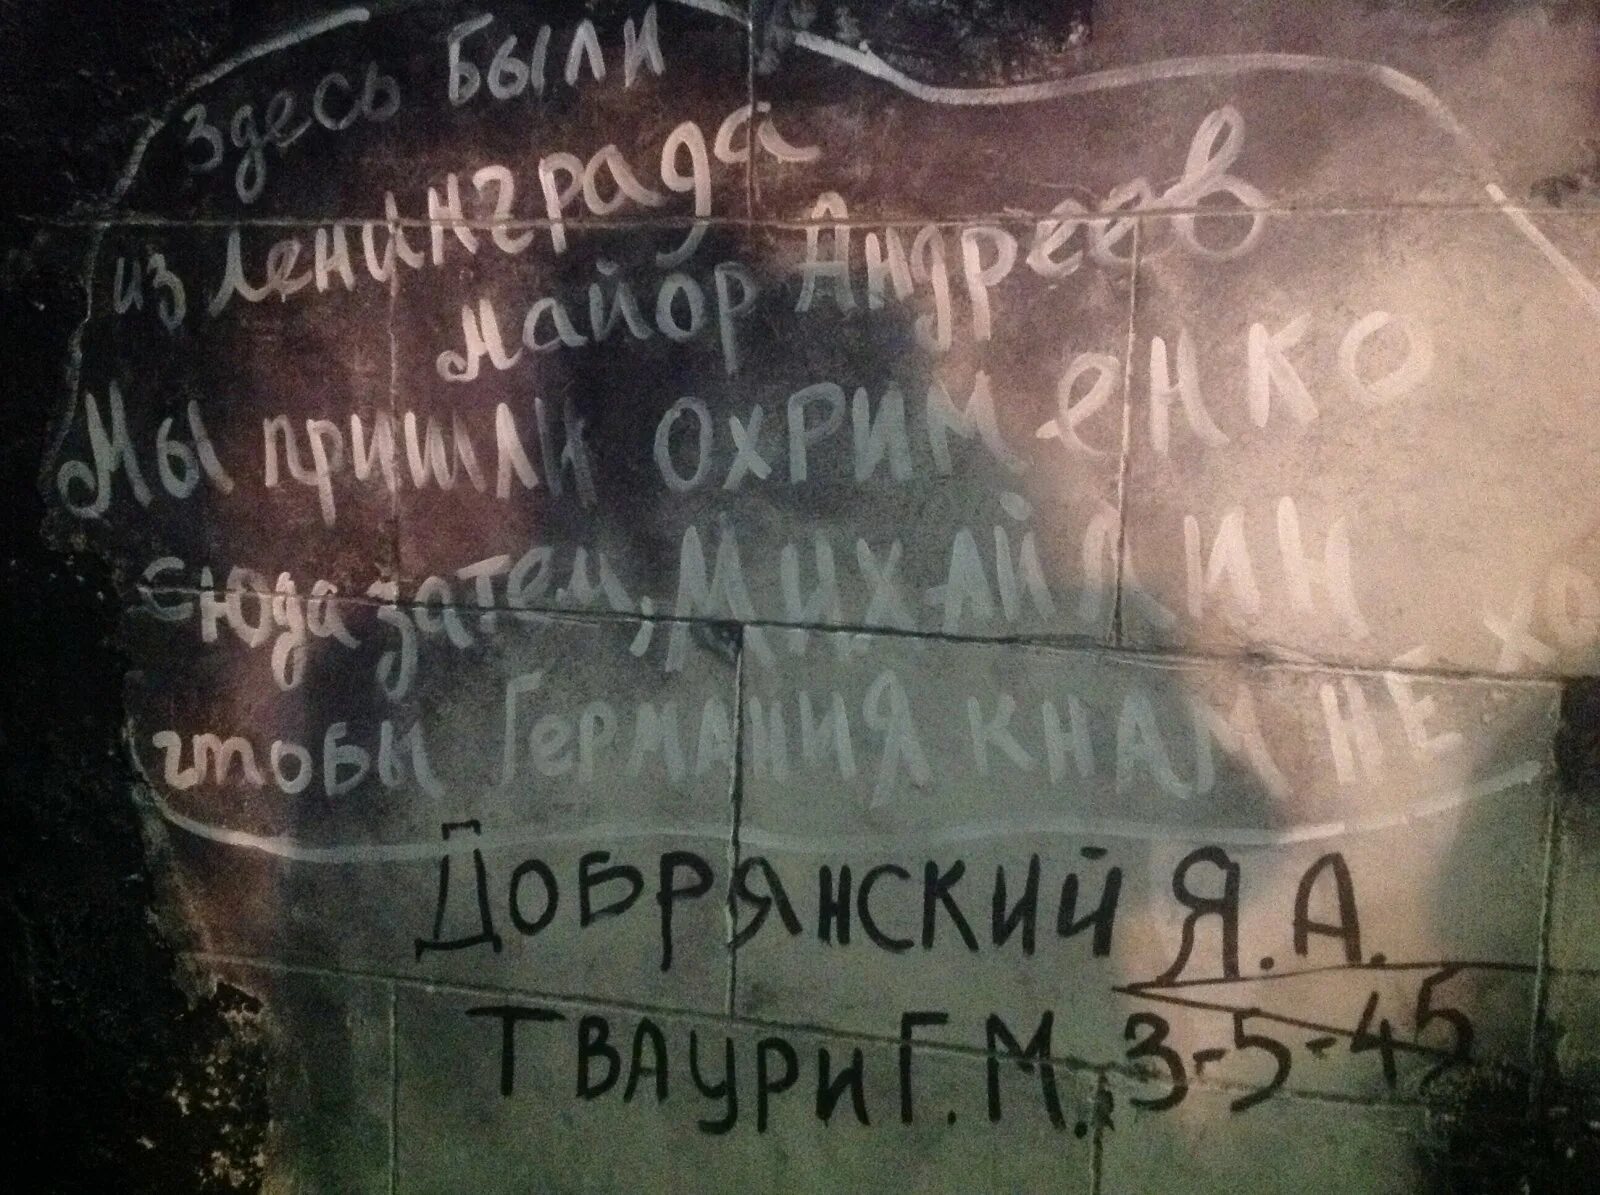 Здесь Были
из Ленинграда
майор Андреев
Мы пришли ОХРИМЕНКО
сюда затем, МИХАЙЛИН
чтобы ГЕРМАНИЯ К НАМ НЕ ХО
ДОБРЯНСКИЙ Я.А.
ТВАУРИ Г.М. 3-5-45